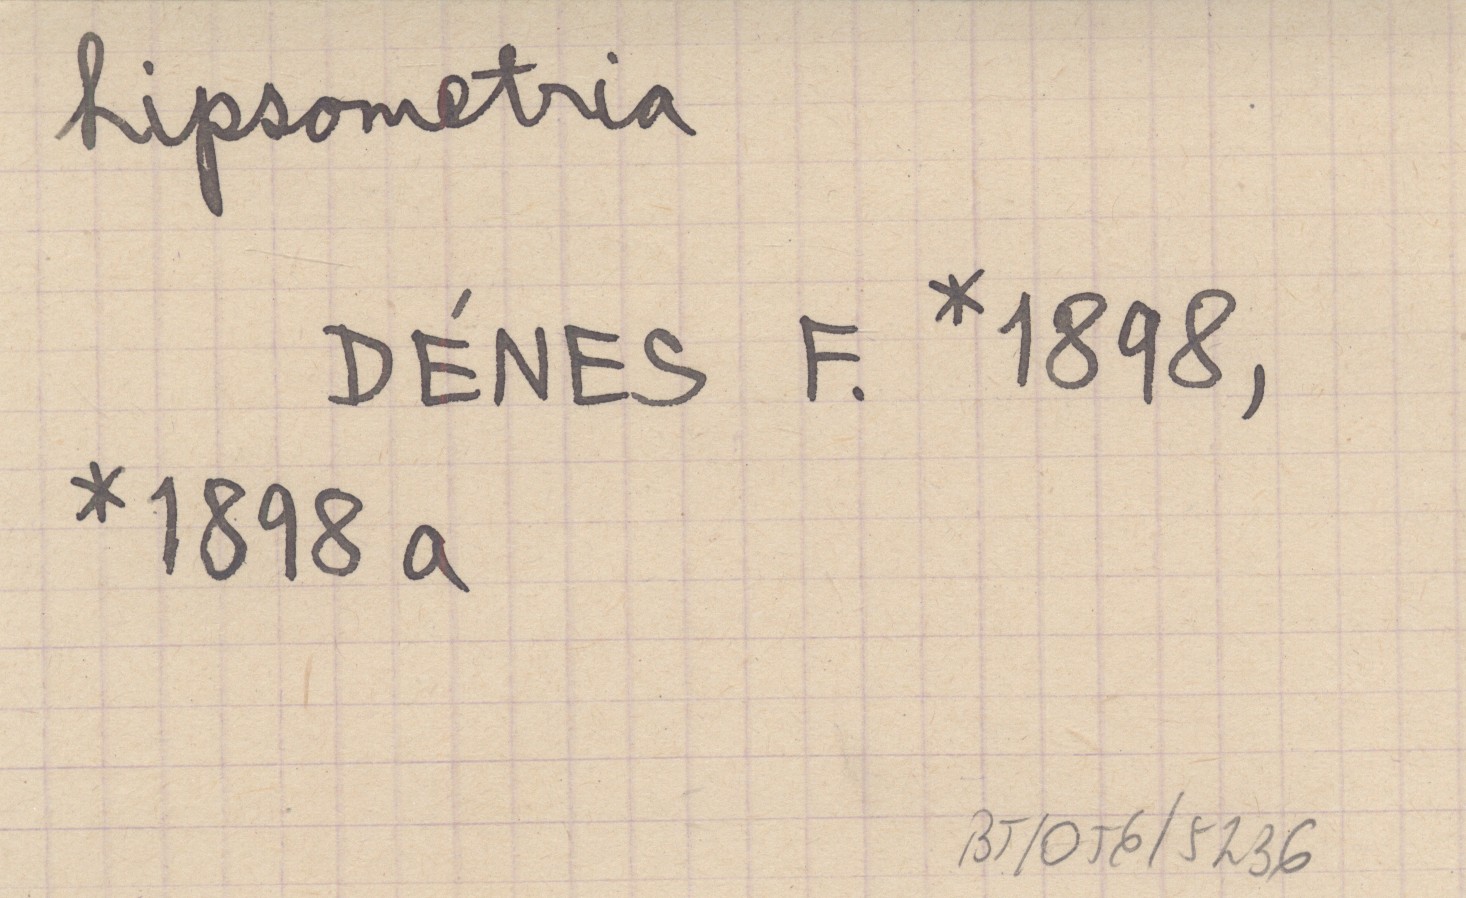 hipsometria
DÉNES F. *1898,
*1898 a
BT/OTG/5236